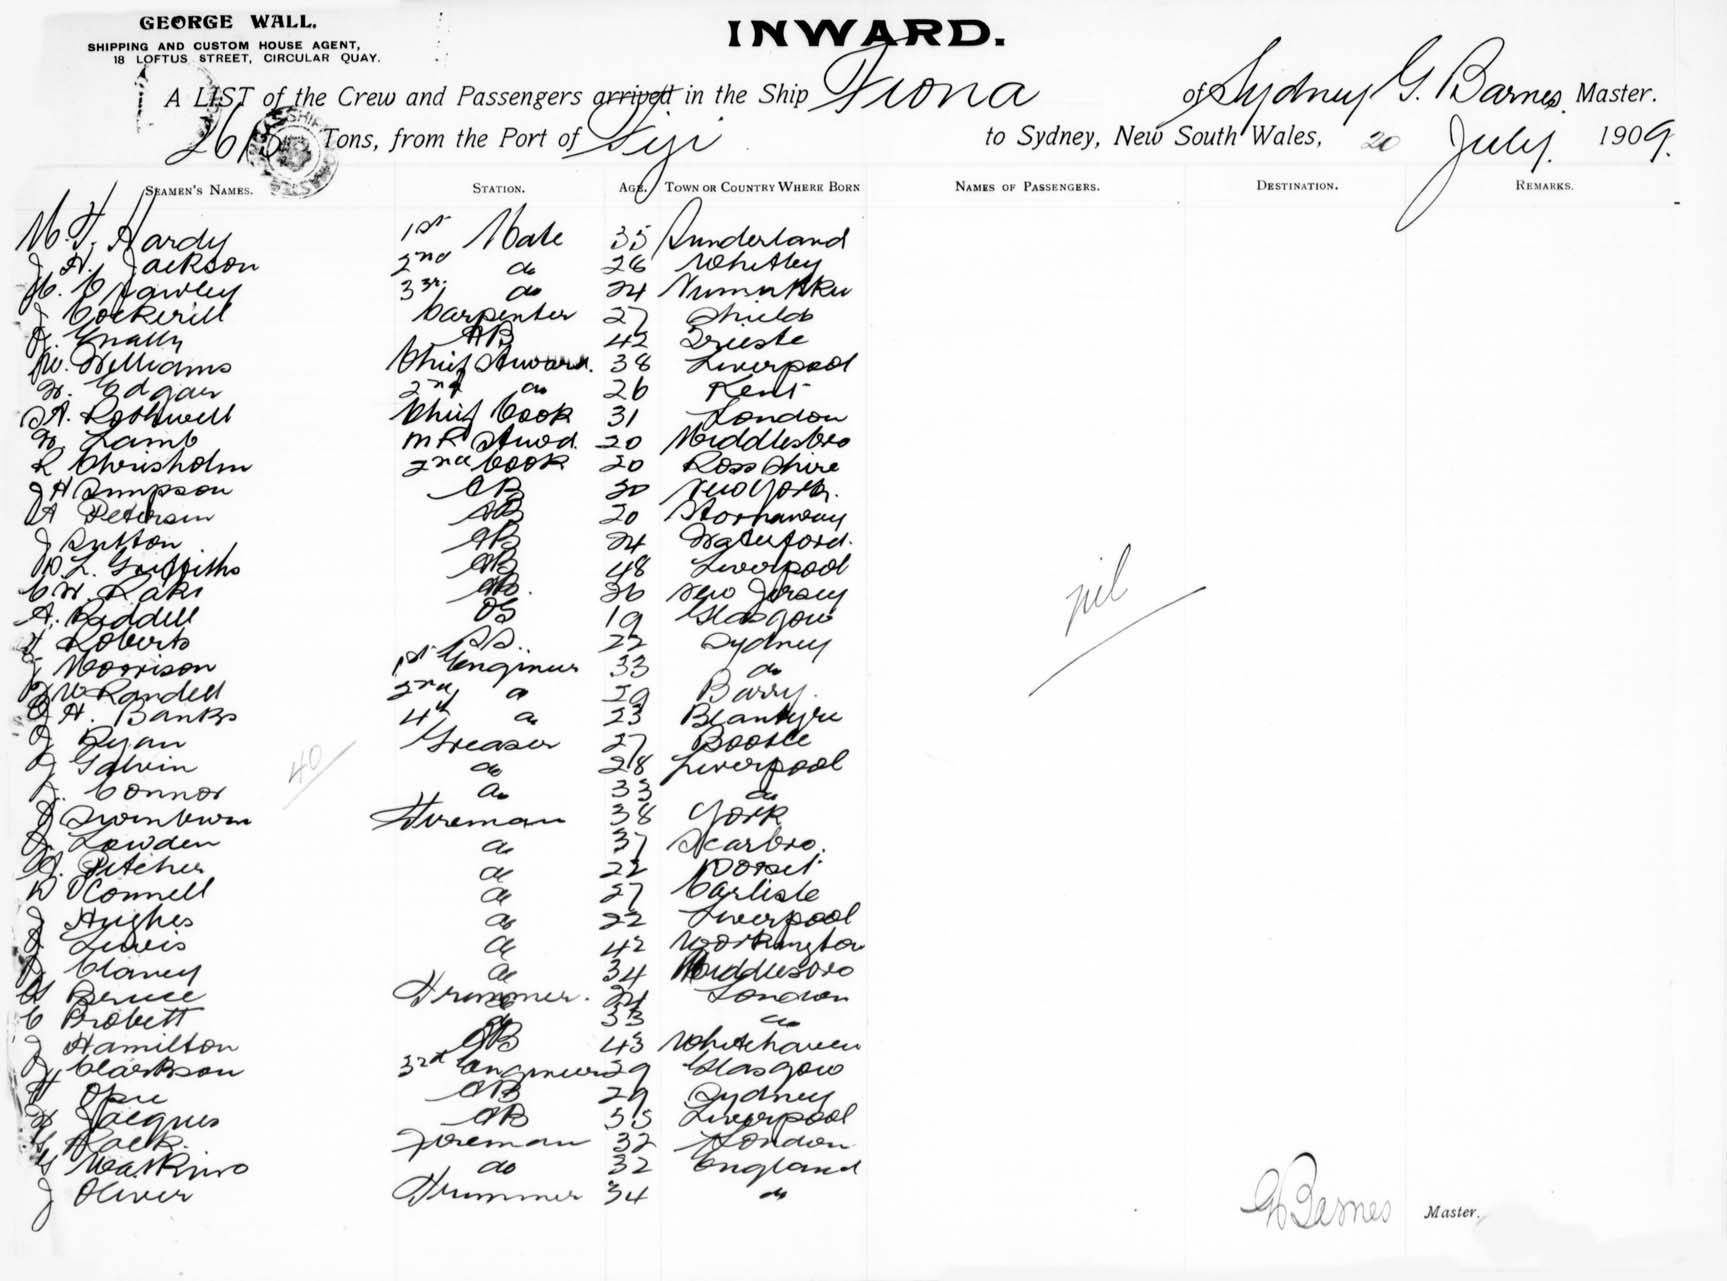 GEORGE WALL.
SHIPPING AND CUSTOM HOUSE AGENT,
18 LOFTUS STREET, CIRCULAR QUAY.
INWARD.
A LIST of the Crew and Passengers arrived in the Ship Fiona of Sydney G. Barnes Master.
Tons, from the Port of Fiji to Sydney, New South Wales, 20 July. 1909.
SEAMEN'S NAMES. STATION. AGE. TOWN OR COUNTRY WHERE BORN NAMES OF PASSENGERS. DESTINATION. REMARKS.
Hardy 1st Mate 35 Sunderland
J. H. Jackson 2nd do 26 Whitley
Crawley 3rd do 24
J Cockerill Carpenter 27 Shields
AB 42 Trieste
W. Williams Chief Steward. 38 Liverpool
Edgar 2nd do 26 Kent
A. Rothwell Chief Cook 31 London
Lamb MR Stwd. 20 Middlesbro
R Chrisholm 2nd Cook 20 Ross Shire
J H Simpson AB 30 New York.
A Petersen AB 20 Stornaway
J Sutton AB 24 Waterford.
L. Griffiths AB 48 Liverpool
C W. AB. 36 New Jersey
A. Riddell OS 19 Glasgow
Roberts 22 Sydney
J Morrison 1st Engineer 33 do
W Randell 2nd do 29 Barry.
H. Banks 4th do 23 Blantyre
J Ryan Greaser 27 Bootle
J Galvin do 28 Liverpool
40
J. Connor do 33 do
J Swinburn Fireman 38 York
J. Lowden do 37 Scarbro.
Pitcher do 22 Dorset
D O'Connell do 27 Carlisle
J Hughes do 22 Liverpool
J Lewis do 42 Workington
J Clancy do 34 Middlesbro
Bruce Trimmer. 24 London
C Probett do 33 do
J Hamilton AB 43 Whitehaven
J. Clarkson 3rd Engineer 29 Glasgow
H Opie AB 29 Sydney
Jacques AB 55 Liverpool
G Rack. Fireman 32 London
G Watkins do 32 England
J Oliver Trimmer 34 do
nil
G Barnes Master.